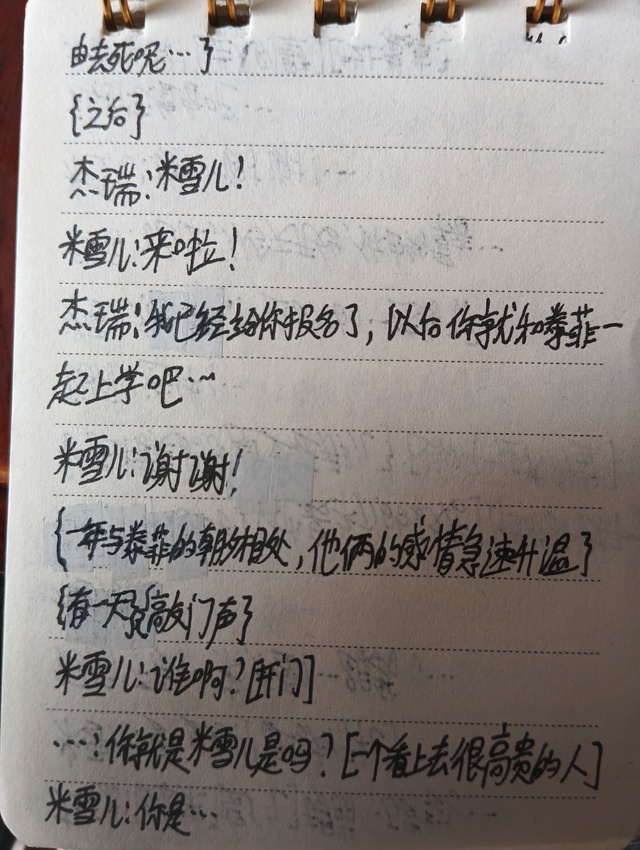 由去死呢…}
{之后}
杰瑞:米雪儿!
米雪儿:来啦!
杰瑞:我已经给你报名了,以后你就和泰菲一
起上学吧…~
米雪儿:谢谢!
{一年与泰菲的朝夕相处,他俩的感情急速升温}
{有一天}{敲门声}
米雪儿:谁啊?[开门]
…:你就是米雪儿是吗?[一个看上去很高贵的人]
米雪儿:你是…